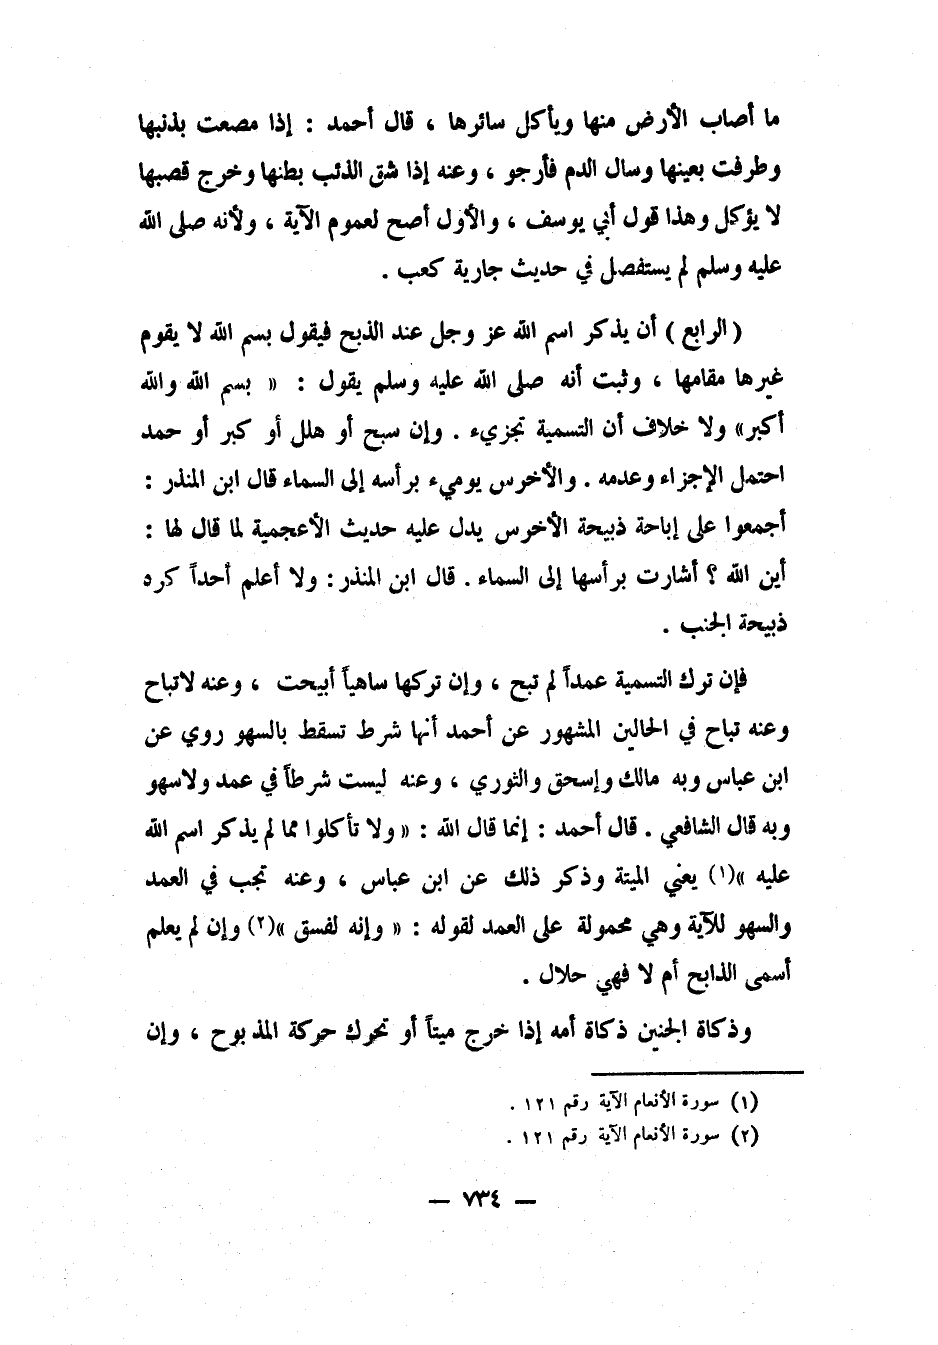 ما أصاب الأرض منها ويأكل سائرها ، قال أحمد : إذا مصعت بذنبها
وطرفت بعينها وسال الدم فأرجو ، وعنه إذا شق الذئب بطنها وخرج قصبها
لا يؤكل وهذا قول أبي يوسف ، والأول أصح لعموم الآية ، ولأنه صلى الله
عليه وسلم لم يستفصل في حديث جارية كعب .
( الرابع ) أن يذكر اسم الله عز وجل عند الذبح فيقول بسم الله لا يقوم
غيرها مقامها ، وثبت أنه صلى الله عليه وسلم يقول : « بسم الله والله
أكبر» ولا خلاف أن التسمية تجزيء . وإن سبح أو هلل أو كبر أو حمد
احتمل الإجزاء وعدمه . والأخرس يوميء برأسه إلى السماء قال ابن المنذر :
أجمعوا على إباحة ذبيحة الأخرس يدل عليه حديث الأعجمية لما قال لها :
أين الله ؟ أشارت برأسها إلى السماء . قال ابن المنذر : ولا أعلم أحداً كره
ذبيحة الجنب .
فإن ترك التسمية عمداً لم تبح ، وإن تركها ساهياً أبيحت ، وعنه لاتباح
وعنه تباح في الحالين المشهور عن أحمد أنها شرط تسقط بالسهو روي عن
ابن عباس وبه مالك وإسحق والثوري ، وعنه ليست شرطاً في عمد ولاسهو
وبه قال الشافعي . قال أحمد : إنما قال الله : « ولا تأكلوا مما لم يذكر اسم الله
عليه »(١) يعني الميتة وذكر ذلك عن ابن عباس ، وعنه تجب في العمد
والسهو للآية وهي محمولة على العمد لقوله : « وإنه لفسق »(٢) وإن لم يعلم
أسمى الذابح أم لا فهي حلال .
وذكاة الجنين ذكاة أمه إذا خرج ميتاً أو تحرك حركة المذبوح ، وإن
(١) سورة الأنعام الآية رقم ١٢١ .
(٢) سورة الأنعام الآية رقم ١٢١ .
— ٧٣٤ —